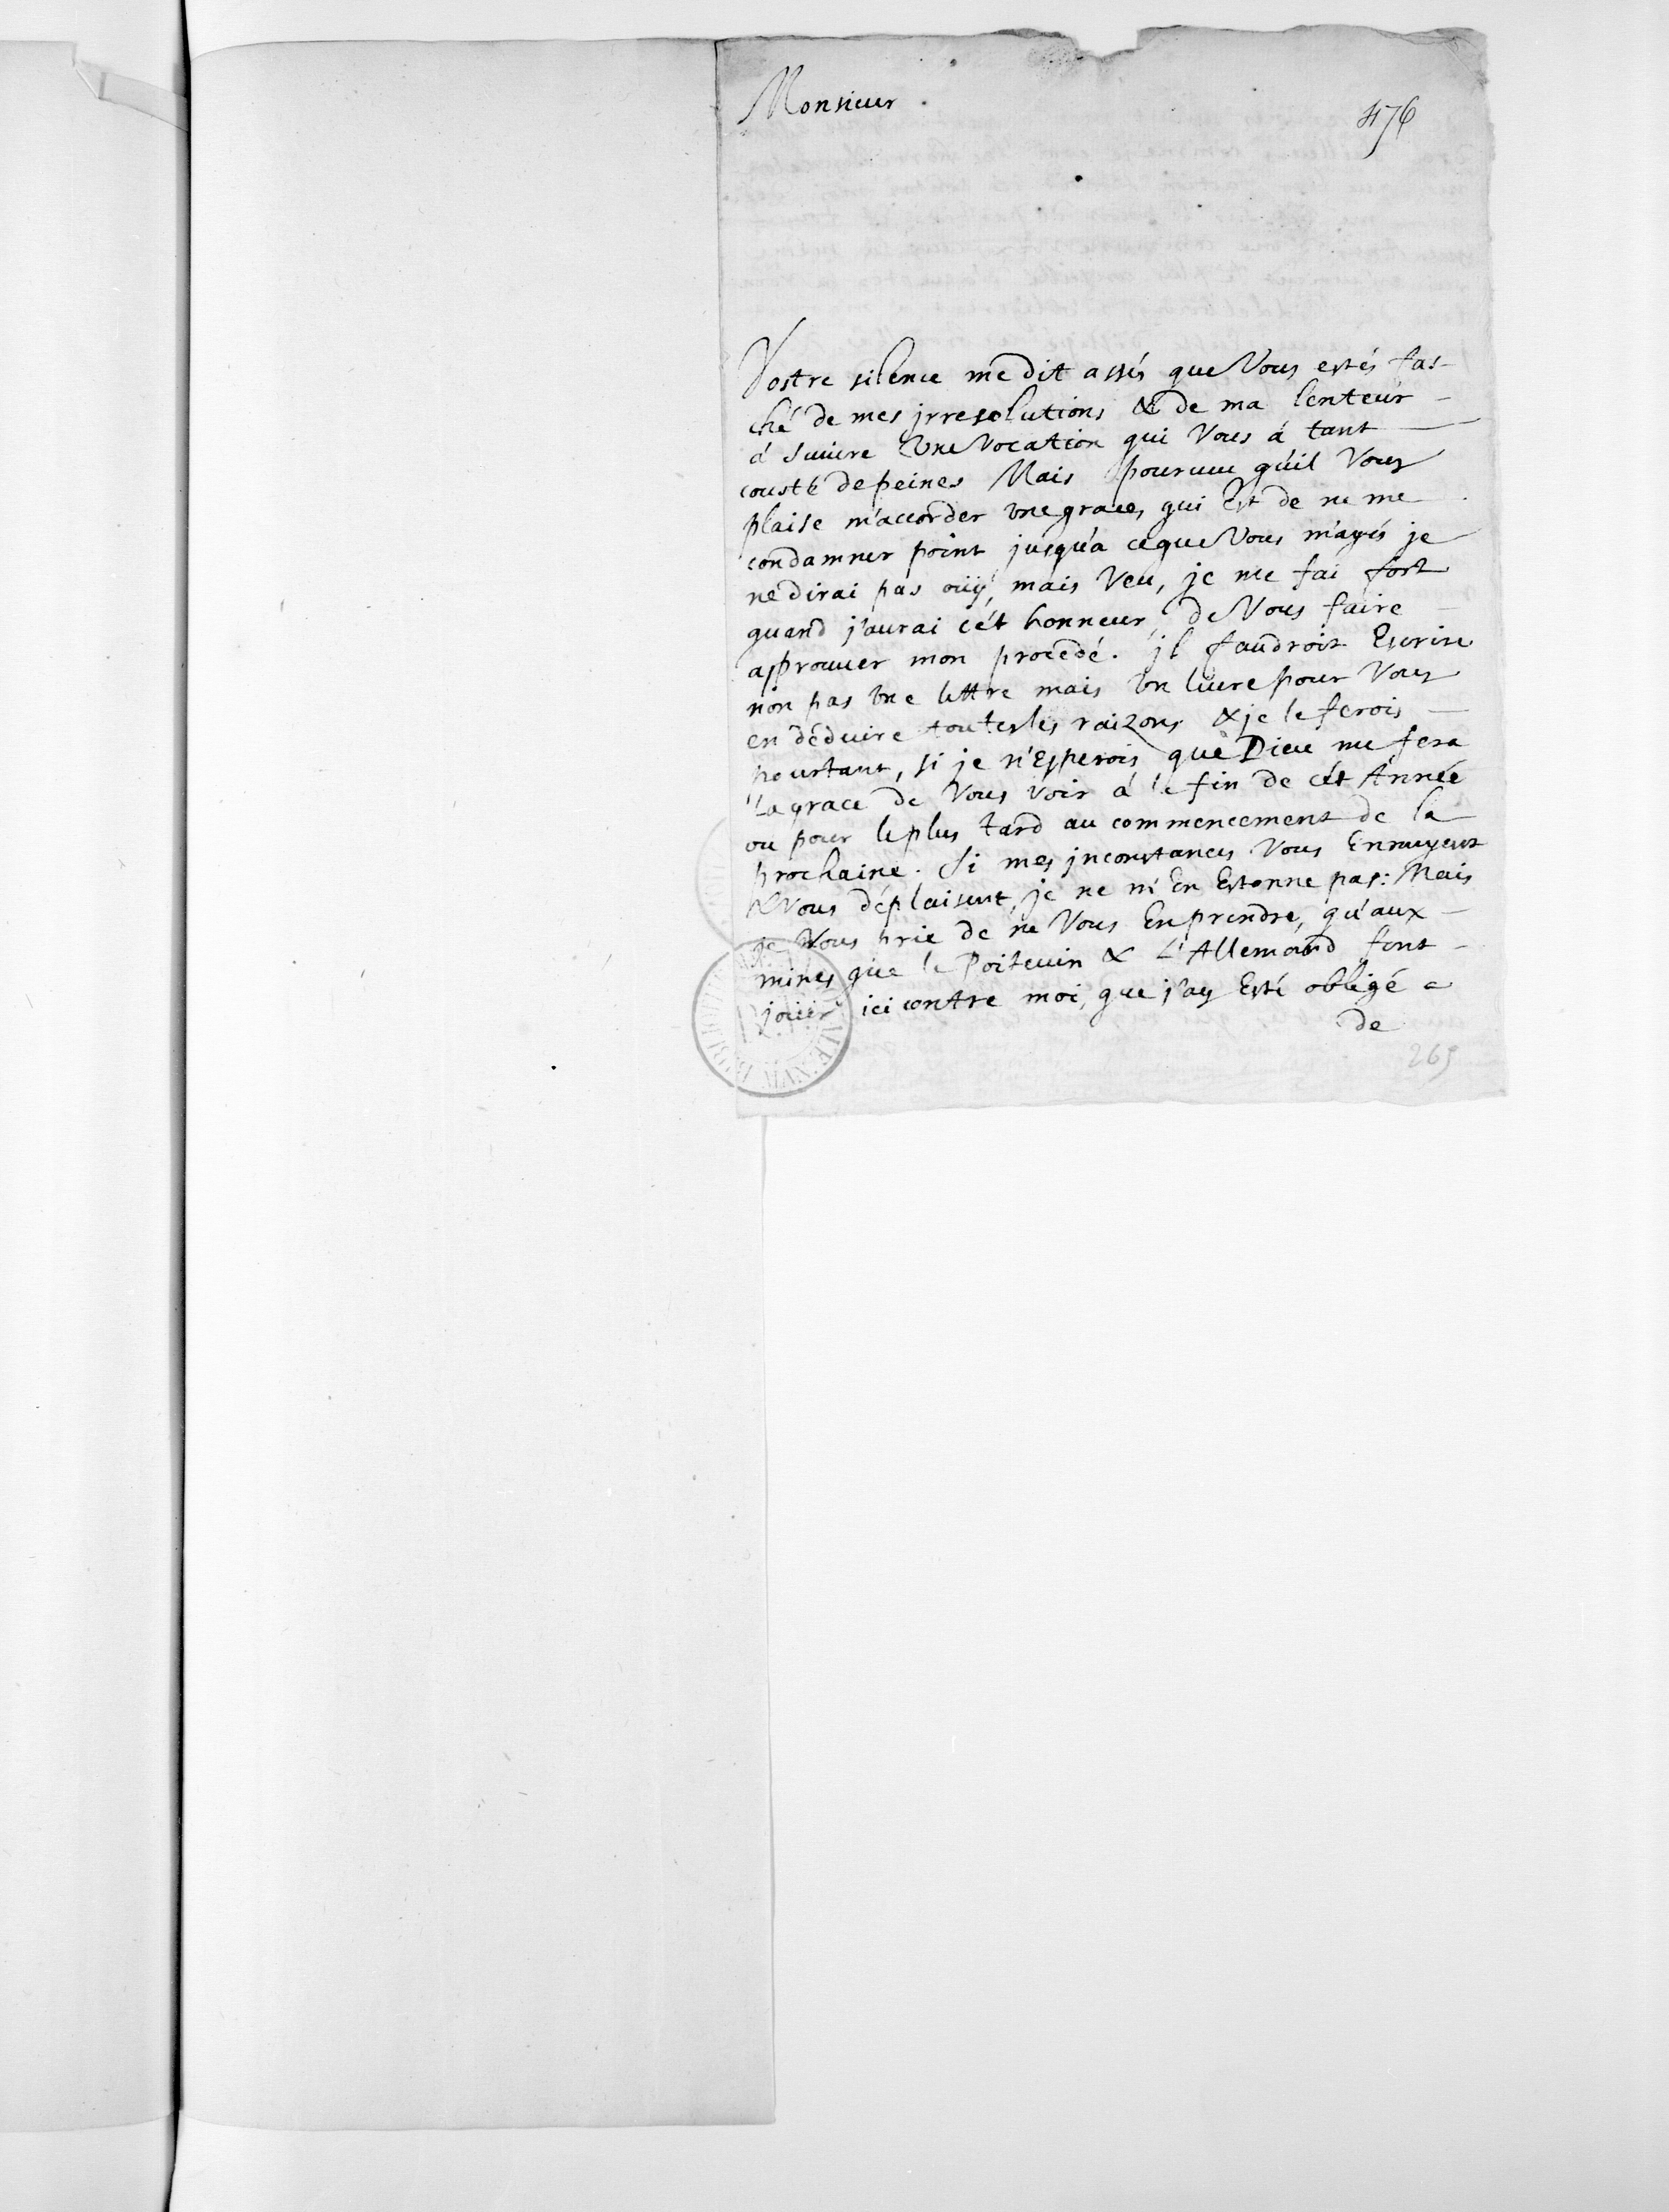 Monsieur
476
Vostre silence me dit assés que Vous estés fas-
ché de mes jrresolutions & de ma lenteur
á suivre Une Vocation qui Vous á tant
cousté de peines Mais pourueu qu'il Vous
plaise m'accorder vne grace, qui Est de ne me
condamner point jusqu'a ce que Vous m'ayés je
ne dirai pas oüy, mais Veu, je me fai fort
quand j'aurai cét honneur, de Vous faire
approuuer mon procedé. jl faudroit Escrire
non pas vne lettre mais vn liure pour Vous
en déduire toutes les raizons & je le ferois
pourtant, si je n'Esperois que Dieu me fera
la grace de Vous voir á la fin de cét Année
ou pour le plus tard au commencement de la
prochaine. Si mes jnconstances Vous Ennuyent
& Vous déplaisent, je ne m'En Estonne pas: Mais
je Vous prie de ne Vous En prendre, qu'aux
mines que le Poiteuin & L'Allemand font
joüer ici contre moi, que j'ay Esté obligé
de
265